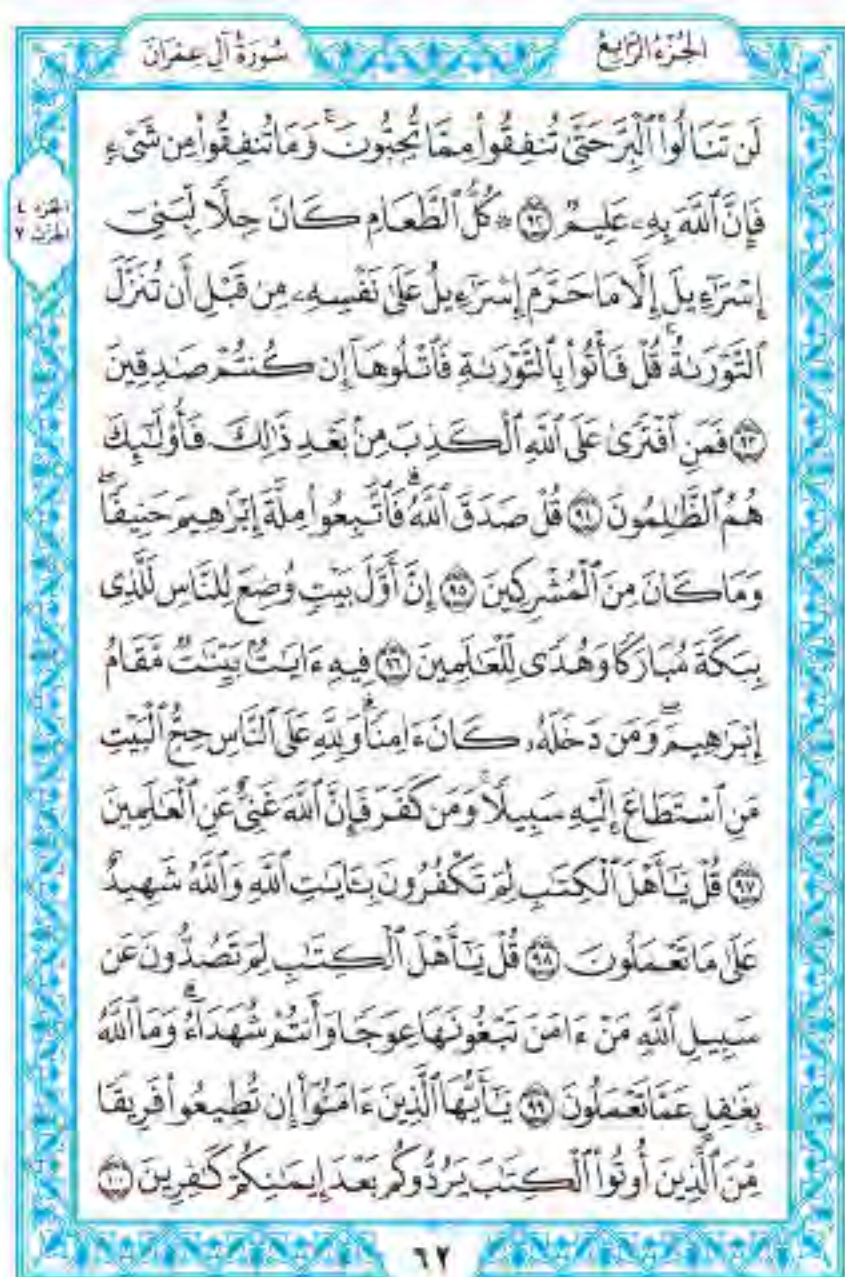 الجزء الرابع
سورة آل عمران
لَن تَنَالُوا۟ ٱلْبِرَّ حَتَّىٰ تُنفِقُوا۟ مِمَّا تُحِبُّونَ ۚ وَمَا تُنفِقُوا۟ مِن شَىْءٍ
فَإِنَّ ٱللَّهَ بِهِۦ عَلِيمٌ ﴿٩٢﴾ ۞ كُلُّ ٱلطَّعَامِ كَانَ حِلًّا لِّبَنِىٓ
إِسْرَٰٓءِيلَ إِلَّا مَا حَرَّمَ إِسْرَٰٓءِيلُ عَلَىٰ نَفْسِهِۦ مِن قَبْلِ أَن تُنَزَّلَ
ٱلتَّوْرَىٰةُ ۗ قُلْ فَأْتُوا۟ بِٱلتَّوْرَىٰةِ فَٱتْلُوهَآ إِن كُنتُمْ صَٰدِقِينَ
﴿٩٣﴾ فَمَنِ ٱفْتَرَىٰ عَلَى ٱللَّهِ ٱلْكَذِبَ مِنۢ بَعْدِ ذَٰلِكَ فَأُو۟لَٰٓئِكَ
هُمُ ٱلظَّٰلِمُونَ ﴿٩٤﴾ قُلْ صَدَقَ ٱللَّهُ ۗ فَٱتَّبِعُوا۟ مِلَّةَ إِبْرَٰهِيمَ حَنِيفًا ۖ
وَمَا كَانَ مِنَ ٱلْمُشْرِكِينَ ﴿٩٥﴾ إِنَّ أَوَّلَ بَيْتٍ وُضِعَ لِلنَّاسِ لَلَّذِى
بِبَكَّةَ مُبَارَكًا وَهُدًى لِّلْعَٰلَمِينَ ﴿٩٦﴾ فِيهِ ءَايَٰتٌۢ بَيِّنَٰتٌ مَّقَامُ
إِبْرَٰهِيمَ ۖ وَمَن دَخَلَهُۥ كَانَ ءَامِنًا ۗ وَلِلَّهِ عَلَى ٱلنَّاسِ حِجُّ ٱلْبَيْتِ
مَنِ ٱسْتَطَاعَ إِلَيْهِ سَبِيلًا ۚ وَمَن كَفَرَ فَإِنَّ ٱللَّهَ غَنِىٌّ عَنِ ٱلْعَٰلَمِينَ
﴿٩٧﴾ قُلْ يَٰٓأَهْلَ ٱلْكِتَٰبِ لِمَ تَكْفُرُونَ بِـَٔايَٰتِ ٱللَّهِ وَٱللَّهُ شَهِيدٌ
عَلَىٰ مَا تَعْمَلُونَ ﴿٩٨﴾ قُلْ يَٰٓأَهْلَ ٱلْكِتَٰبِ لِمَ تَصُدُّونَ عَن
سَبِيلِ ٱللَّهِ مَنْ ءَامَنَ تَبْغُونَهَا عِوَجًا وَأَنتُمْ شُهَدَآءُ ۗ وَمَا ٱللَّهُ
بِغَٰفِلٍ عَمَّا تَعْمَلُونَ ﴿٩٩﴾ يَٰٓأَيُّهَا ٱلَّذِينَ ءَامَنُوٓا۟ إِن تُطِيعُوا۟ فَرِيقًا
مِّنَ ٱلَّذِينَ أُوتُوا۟ ٱلْكِتَٰبَ يَرُدُّوكُم بَعْدَ إِيمَٰنِكُمْ كَٰفِرِينَ ﴿١٠٠﴾
الجزء ٤
الحزب ٧
٦٢